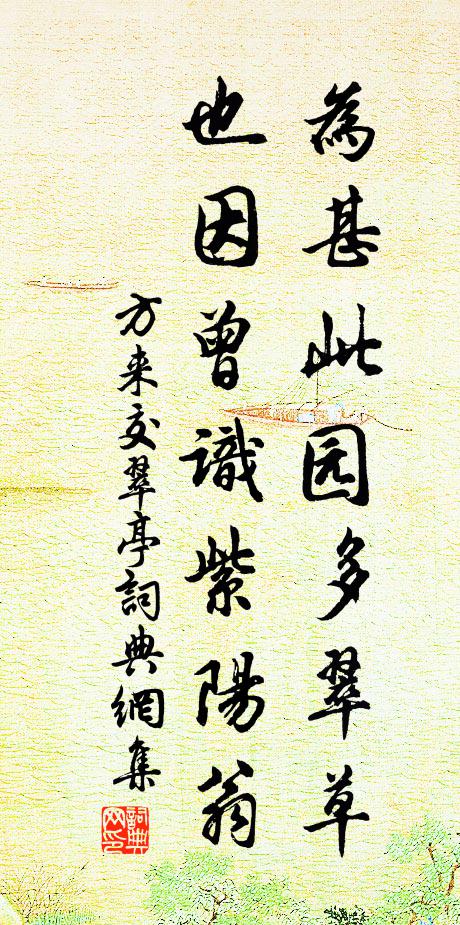 為甚此园多翠草
也因曾識紫陽翁
方来交翠亭詞典網集
詞典网印